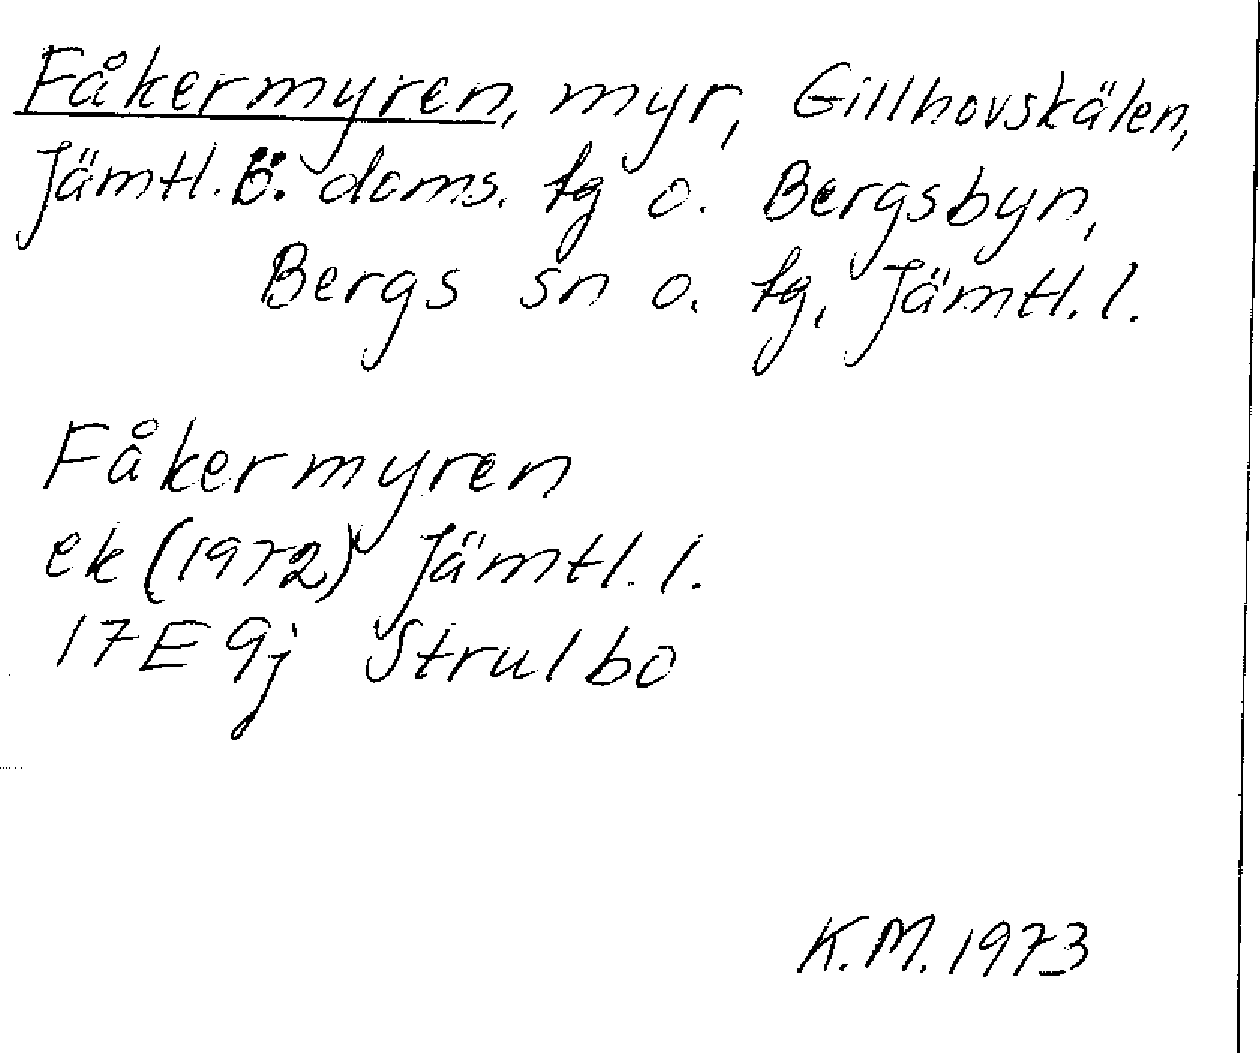 Fåkermyren, myr, Gillhovskälen,
Jämtl. Ö. doms. tg o. Bergsbyn,
Bergs sn o. tg, Jämtl. l.
Fåkermyren
ek (1972) Jämtl. l.
17E 9j Strulbo
K.M. 1973